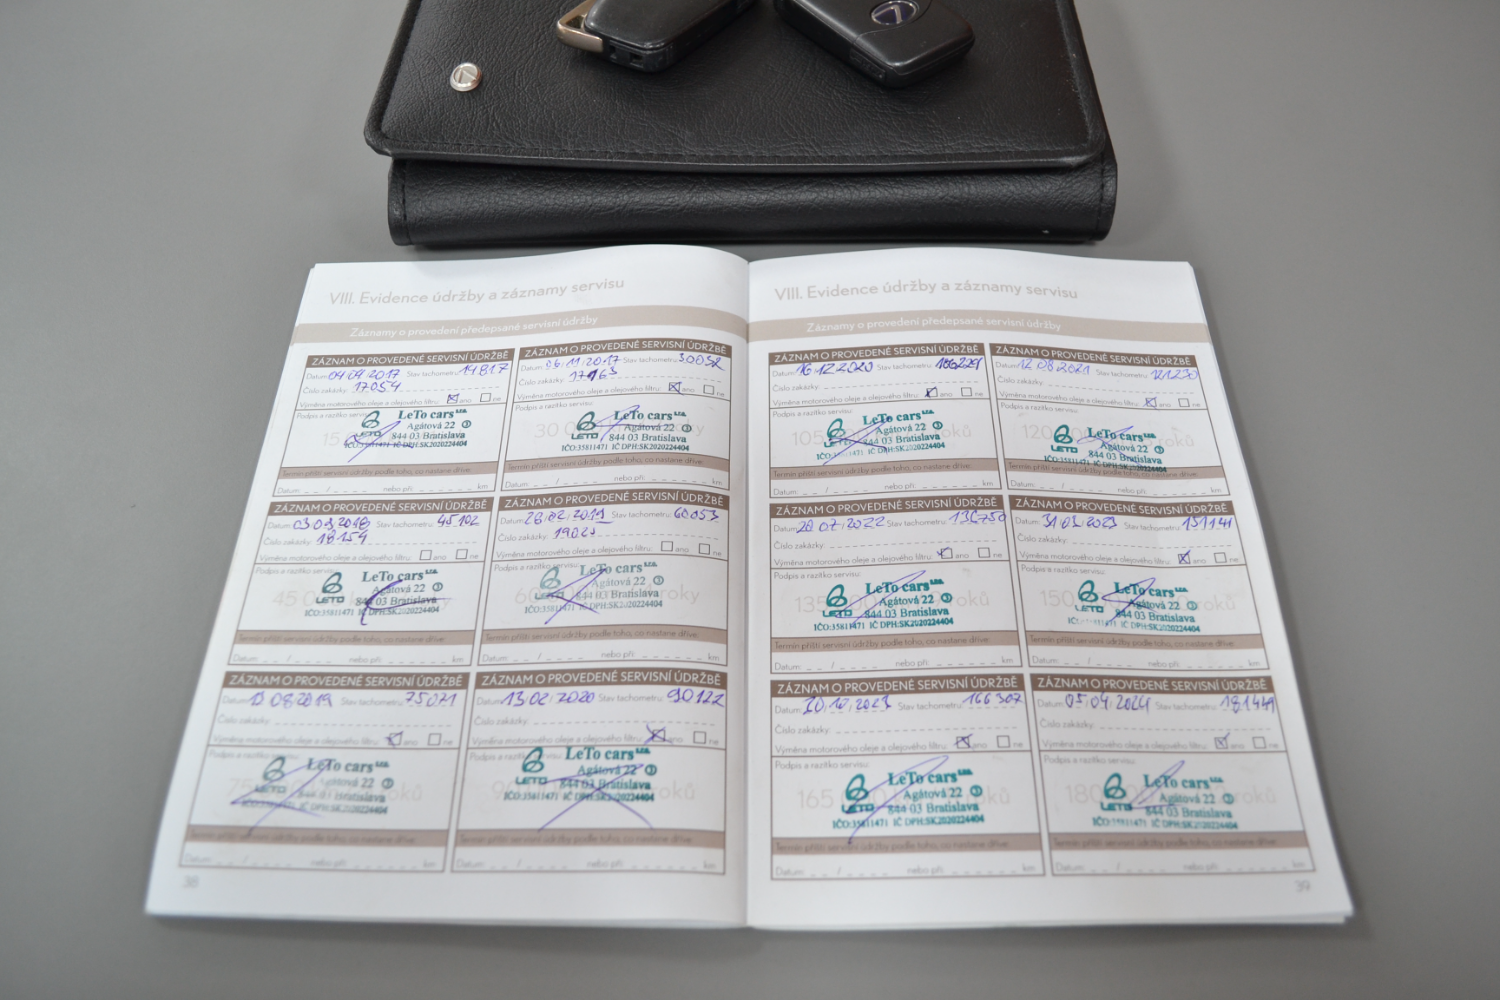 VIII. Evidence údržby a záznamy servisu
Záznamy o provedení předepsané servisní údržby
ZÁZNAM O PROVEDENÉ SERVISNÍ ÚDRŽBĚ
Datum: 04/09/2017 Stav tachometru: 14817
Číslo zakázky: 17054
Výměna motorového oleje a olejového filtru: ano ne
Podpis a razítko servisu:
LeTo cars s.r.o.
Agátová 22
LETO 844 03 Bratislava
IČO:35811471 IČ DPH:SK2020224404
Termín příští servisní údržby podle toho, co nastane dříve:
Datum: _ _ / _ _ _ _ nebo při: _ _ _ _ _ _ km
ZÁZNAM O PROVEDENÉ SERVISNÍ ÚDRŽBĚ
Datum: 06/11/2017 Stav tachometru: 30052
Číslo zakázky: 17163
Výměna motorového oleje a olejového filtru: ano ne
Podpis a razítko servisu:
30 0
LeTo cars s.r.o.
Agátová 22
LETO 844 03 Bratislava
IČO:35811471 IČ DPH:SK2020224404
Termín příští servisní údržby podle toho, co nastane dříve:
Datum: _ _ / _ _ _ _ nebo při: _ _ _ _ _ _ km
ZÁZNAM O PROVEDENÉ SERVISNÍ ÚDRŽBĚ
Datum: 03 09 2018 Stav tachometru: 45102
Číslo zakázky: 18154
Výměna motorového oleje a olejového filtru: ano ne
Podpis a razítko servisu:
45 0
LeTo cars s.r.o.
Agátová 22
LETO 844 03 Bratislava
IČO:35811471 IČ DPH:SK2020224404
Termín příští servisní údržby podle toho, co nastane dříve:
Datum: _ _ / _ _ _ _ nebo při: _ _ _ _ _ _ km
ZÁZNAM O PROVEDENÉ SERVISNÍ ÚDRŽBĚ
Datum: 28/02/2019 Stav tachometru: 60053
Číslo zakázky:
Výměna motorového oleje a olejového filtru: ano ne
Podpis a razítko servisu:
LeTo cars s.r.o.
Agátová 22
LETO 844 03 Bratislava
IČO:35811471 IČ DPH:SK2020224404
Termín příští servisní údržby podle toho, co nastane dříve:
Datum: _ _ / _ _ _ _ nebo při: _ _ _ _ _ _ km
ZÁZNAM O PROVEDENÉ SERVISNÍ ÚDRŽBĚ
Datum: 13 08 2019 Stav tachometru: 75071
Číslo zakázky:
Výměna motorového oleje a olejového filtru: ano ne
Podpis a razítko servisu:
LeTo cars s.r.o.
Agátová 22
LETO 844 03 Bratislava
IČO:35811471 IČ DPH:SK2020224404
Termín příští servisní údržby podle toho, co nastane dříve:
Datum: _ _ / _ _ _ _ nebo při: _ _ _ _ _ _ km
ZÁZNAM O PROVEDENÉ SERVISNÍ ÚDRŽBĚ
Datum: 13/02/2020 Stav tachometru: 90122
Číslo zakázky:
Výměna motorového oleje a olejového filtru: ano ne
Podpis a razítko servisu:
LeTo cars s.r.o.
Agátová 22
LETO 844 03 Bratislava
IČO:35811471 IČ DPH:SK2020224404
Termín příští servisní údržby podle toho, co nastane dříve:
Datum: _ _ / _ _ _ _ nebo při: _ _ _ _ _ _ km
38
VIII. Evidence údržby a záznamy servisu
Záznamy o provedení předepsané servisní údržby
ZÁZNAM O PROVEDENÉ SERVISNÍ ÚDRŽBĚ
Datum: 16/12/2020 Stav tachometru: 106229
Číslo zakázky:
Výměna motorového oleje a olejového filtru: ano ne
Podpis a razítko servisu:
105 roků
LeTo cars s.r.o.
Agátová 22
LETO 844 03 Bratislava
IČO:35811471 IČ DPH:SK2020224404
Termín příští servisní údržby podle toho, co nastane dříve:
Datum: _ _ / _ _ _ _ nebo při: _ _ _ _ _ _ km
ZÁZNAM O PROVEDENÉ SERVISNÍ ÚDRŽBĚ
Datum: 12 08 2021 Stav tachometru: 121230
Číslo zakázky:
Výměna motorového oleje a olejového filtru: ano ne
Podpis a razítko servisu:
120 roků
LeTo cars s.r.o.
Agátová 22
LETO 844 03 Bratislava
IČO:35811471 IČ DPH:SK2020224404
Termín příští servisní údržby podle toho, co nastane dříve:
Datum: _ _ / _ _ _ _ nebo při: _ _ _ _ _ _ km
ZÁZNAM O PROVEDENÉ SERVISNÍ ÚDRŽBĚ
Datum: 20 07/2022 Stav tachometru: 136750
Číslo zakázky:
Výměna motorového oleje a olejového filtru: ano ne
Podpis a razítko servisu:
135 roků
LeTo cars s.r.o.
Agátová 22
LETO 844 03 Bratislava
IČO:35811471 IČ DPH:SK2020224404
Termín příští servisní údržby podle toho, co nastane dříve:
Datum: _ _ / _ _ _ _ nebo při: _ _ _ _ _ _ km
ZÁZNAM O PROVEDENÉ SERVISNÍ ÚDRŽBĚ
Datum: 31/01/2023 Stav tachometru: 151141
Číslo zakázky:
Výměna motorového oleje a olejového filtru: ano ne
Podpis a razítko servisu:
150 roků
LeTo cars s.r.o.
Agátová 22
LETO 844 03 Bratislava
IČO:35811471 IČ DPH:SK2020224404
Termín příští servisní údržby podle toho, co nastane dříve:
Datum: _ _ / _ _ _ _ nebo při: _ _ _ _ _ _ km
ZÁZNAM O PROVEDENÉ SERVISNÍ ÚDRŽBĚ
Datum: 20/10/2023 Stav tachometru: 166307
Číslo zakázky:
Výměna motorového oleje a olejového filtru: ano ne
Podpis a razítko servisu:
165 roků
LeTo cars s.r.o.
Agátová 22
LETO 844 03 Bratislava
IČO:35811471 IČ DPH:SK2020224404
Termín příští servisní údržby podle toho, co nastane dříve:
Datum: _ _ / _ _ _ _ nebo při: _ _ _ _ _ _ km
ZÁZNAM O PROVEDENÉ SERVISNÍ ÚDRŽBĚ
Datum: 05/04/2024 Stav tachometru: 181441
Číslo zakázky:
Výměna motorového oleje a olejového filtru: ano ne
Podpis a razítko servisu:
180 roků
LeTo cars s.r.o.
Agátová 22
LETO 844 03 Bratislava
IČO:35811471 IČ DPH:SK2020224404
Termín příští servisní údržby podle toho, co nastane dříve:
Datum: _ _ / _ _ _ _ nebo při: _ _ _ _ _ _ km
39